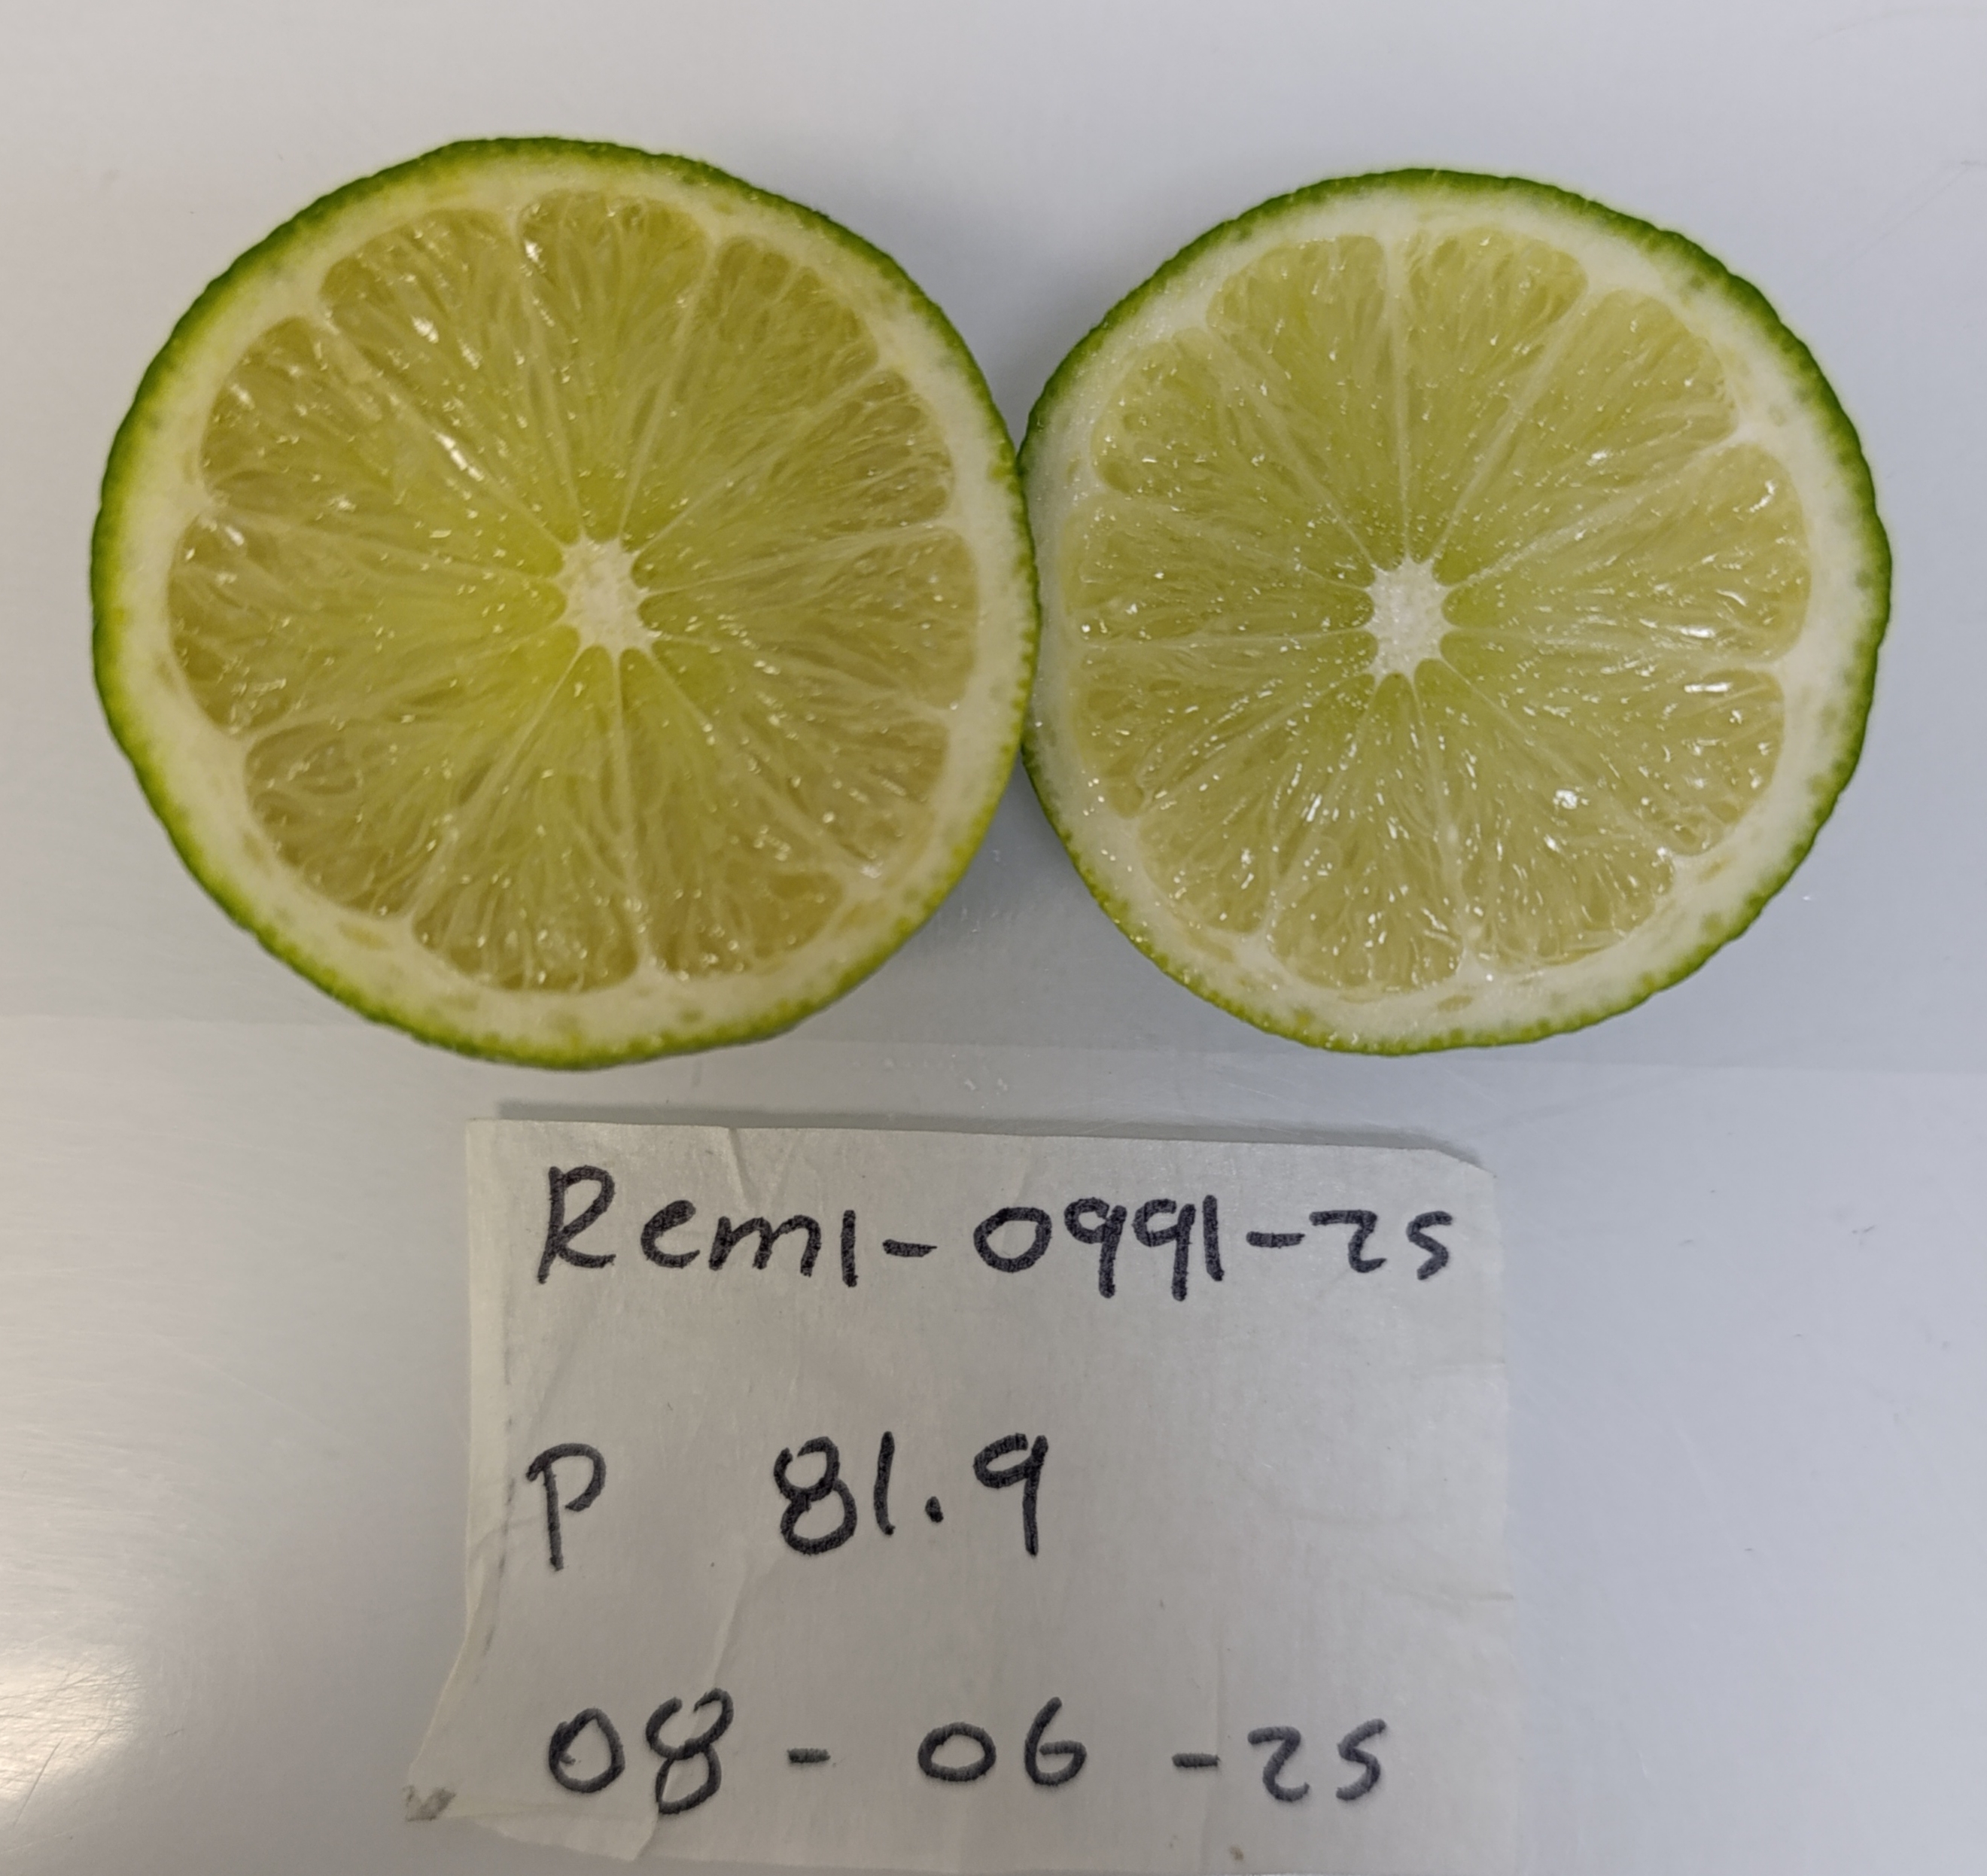 Rem1-0991-25
P 81.9
08-06-25